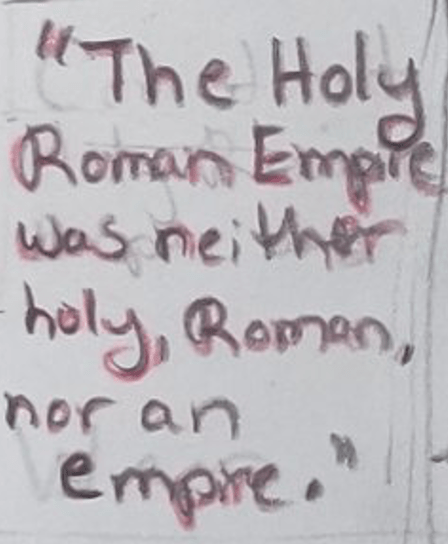 "The Holy
Roman Empire
was neither
holy, Roman,
nor an
empire."